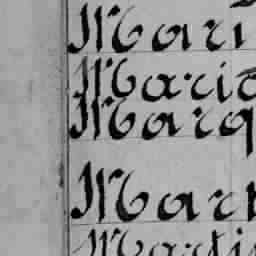 Mari
Maric
Marq
Mari
Marti